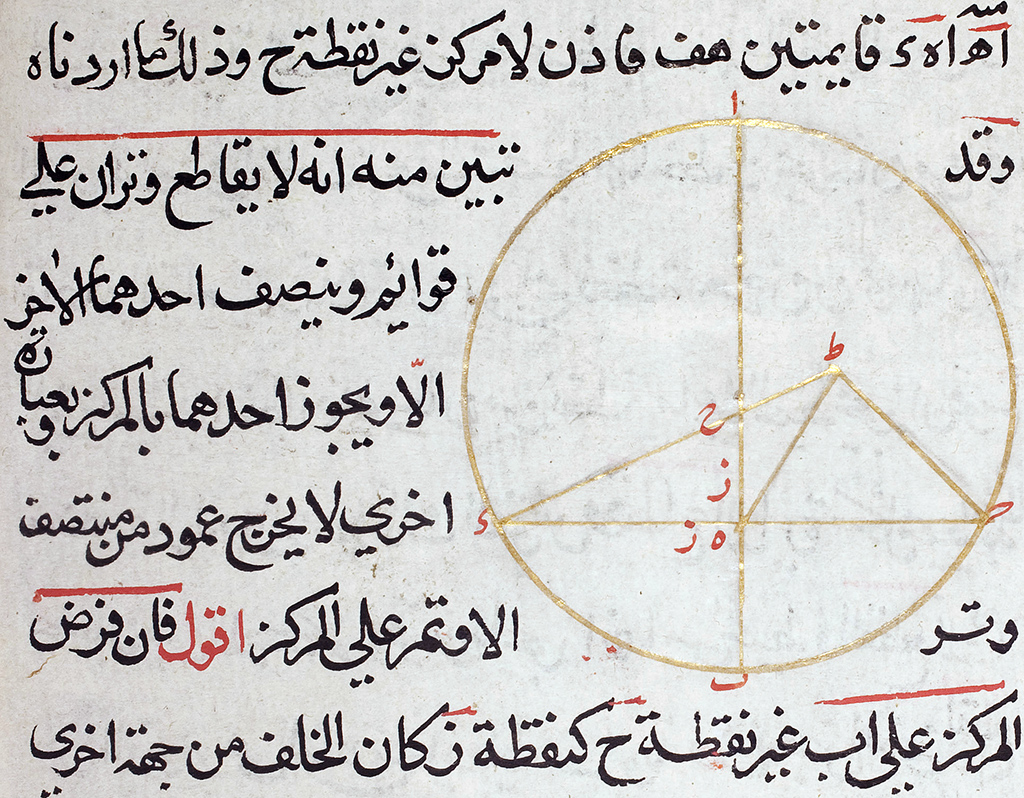 منه
اه‍ اه ء قايمتين هف فاذن لا مركز غير نقطة ح وذلك ما اردناه
وقد تبين منه انه لا يقاطع وتران علي
قوائم وينصف احدهما الاخر
الّا ويجوز احدهما بالمركز وبعبارة
اخري لا يخرج عمود من منتصف
وتر الا وتمر علي المركز اقول فان فرض
المركز علي اب غير نقطة ح كنقطة ز كان الخلف من جهة اخري
ا
ط
ح
ز
ء
ز ه
ح
ب